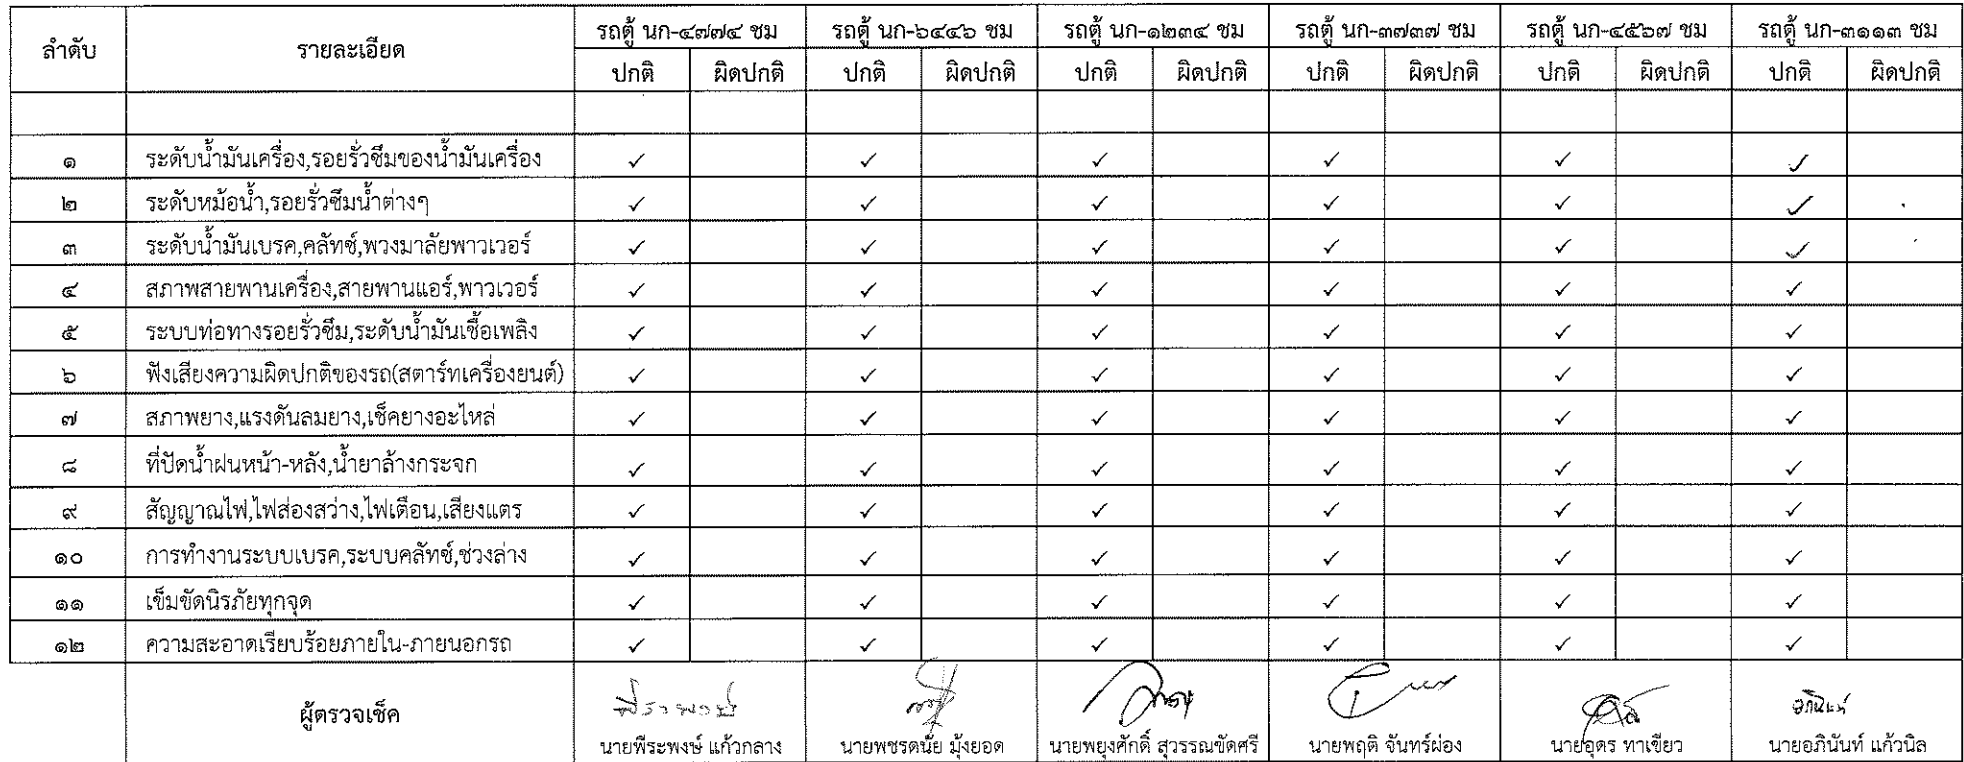 ลำดับ รายละเอียด รถตู้ นก-๔๗๗๔ ชม รถตู้ นก-๖๔๔๖ ชม รถตู้ นก-๑๒๓๔ ชม รถตู้ นก-๓๗๓๗ ชม รถตู้ นก-๔๕๖๗ ชม รถตู้ นก-๓๑๑๓ ชม
ปกติ ผิดปกติ ปกติ ผิดปกติ ปกติ ผิดปกติ ปกติ ผิดปกติ ปกติ ผิดปกติ ปกติ ผิดปกติ
๑ ระดับน้ำมันเครื่อง,รอยรั่วซึมของน้ำมันเครื่อง ✓ ✓ ✓ ✓ ✓ ✓
๒ ระดับหม้อน้ำ,รอยรั่วซึมน้ำต่างๆ ✓ ✓ ✓ ✓ ✓ ✓
๓ ระดับน้ำมันเบรค,คลัทช์,พวงมาลัยพาวเวอร์ ✓ ✓ ✓ ✓ ✓ ✓
๔ สภาพสายพานเครื่อง,สายพานแอร์,พาวเวอร์ ✓ ✓ ✓ ✓ ✓ ✓
๕ ระบบท่อทางรอยรั่วซึม,ระดับน้ำมันเชื้อเพลิง ✓ ✓ ✓ ✓ ✓ ✓
๖ ฟังเสียงความผิดปกติของรถ(สตาร์ทเครื่องยนต์) ✓ ✓ ✓ ✓ ✓ ✓
๗ สภาพยาง,แรงดันลมยาง,เช็คยางอะไหล่ ✓ ✓ ✓ ✓ ✓ ✓
๘ ที่ปัดน้ำฝนหน้า-หลัง,น้ำยาล้างกระจก ✓ ✓ ✓ ✓ ✓ ✓
๙ สัญญาณไฟ,ไฟส่องสว่าง,ไฟเตือน,เสียงแตร ✓ ✓ ✓ ✓ ✓ ✓
๑๐ การทำงานระบบเบรค,ระบบคลัทช์,ช่วงล่าง ✓ ✓ ✓ ✓ ✓ ✓
๑๑ เข็มขัดนิรภัยทุกจุด ✓ ✓ ✓ ✓ ✓ ✓
๑๒ ความสะอาดเรียบร้อยภายใน-ภายนอกรถ ✓ ✓ ✓ ✓ ✓ ✓
ผู้ตรวจเช็ค พีระพงษ์ อภินันท์
นายพีระพงษ์ แก้วกลาง นายพชรดนัย มุ้งยอด นายพยุงศักดิ์ สุวรรณขัดศรี นายพฤติ จันทร์ผ่อง นายอุดร ทาเขียว นายอภินันท์ แก้วนิล